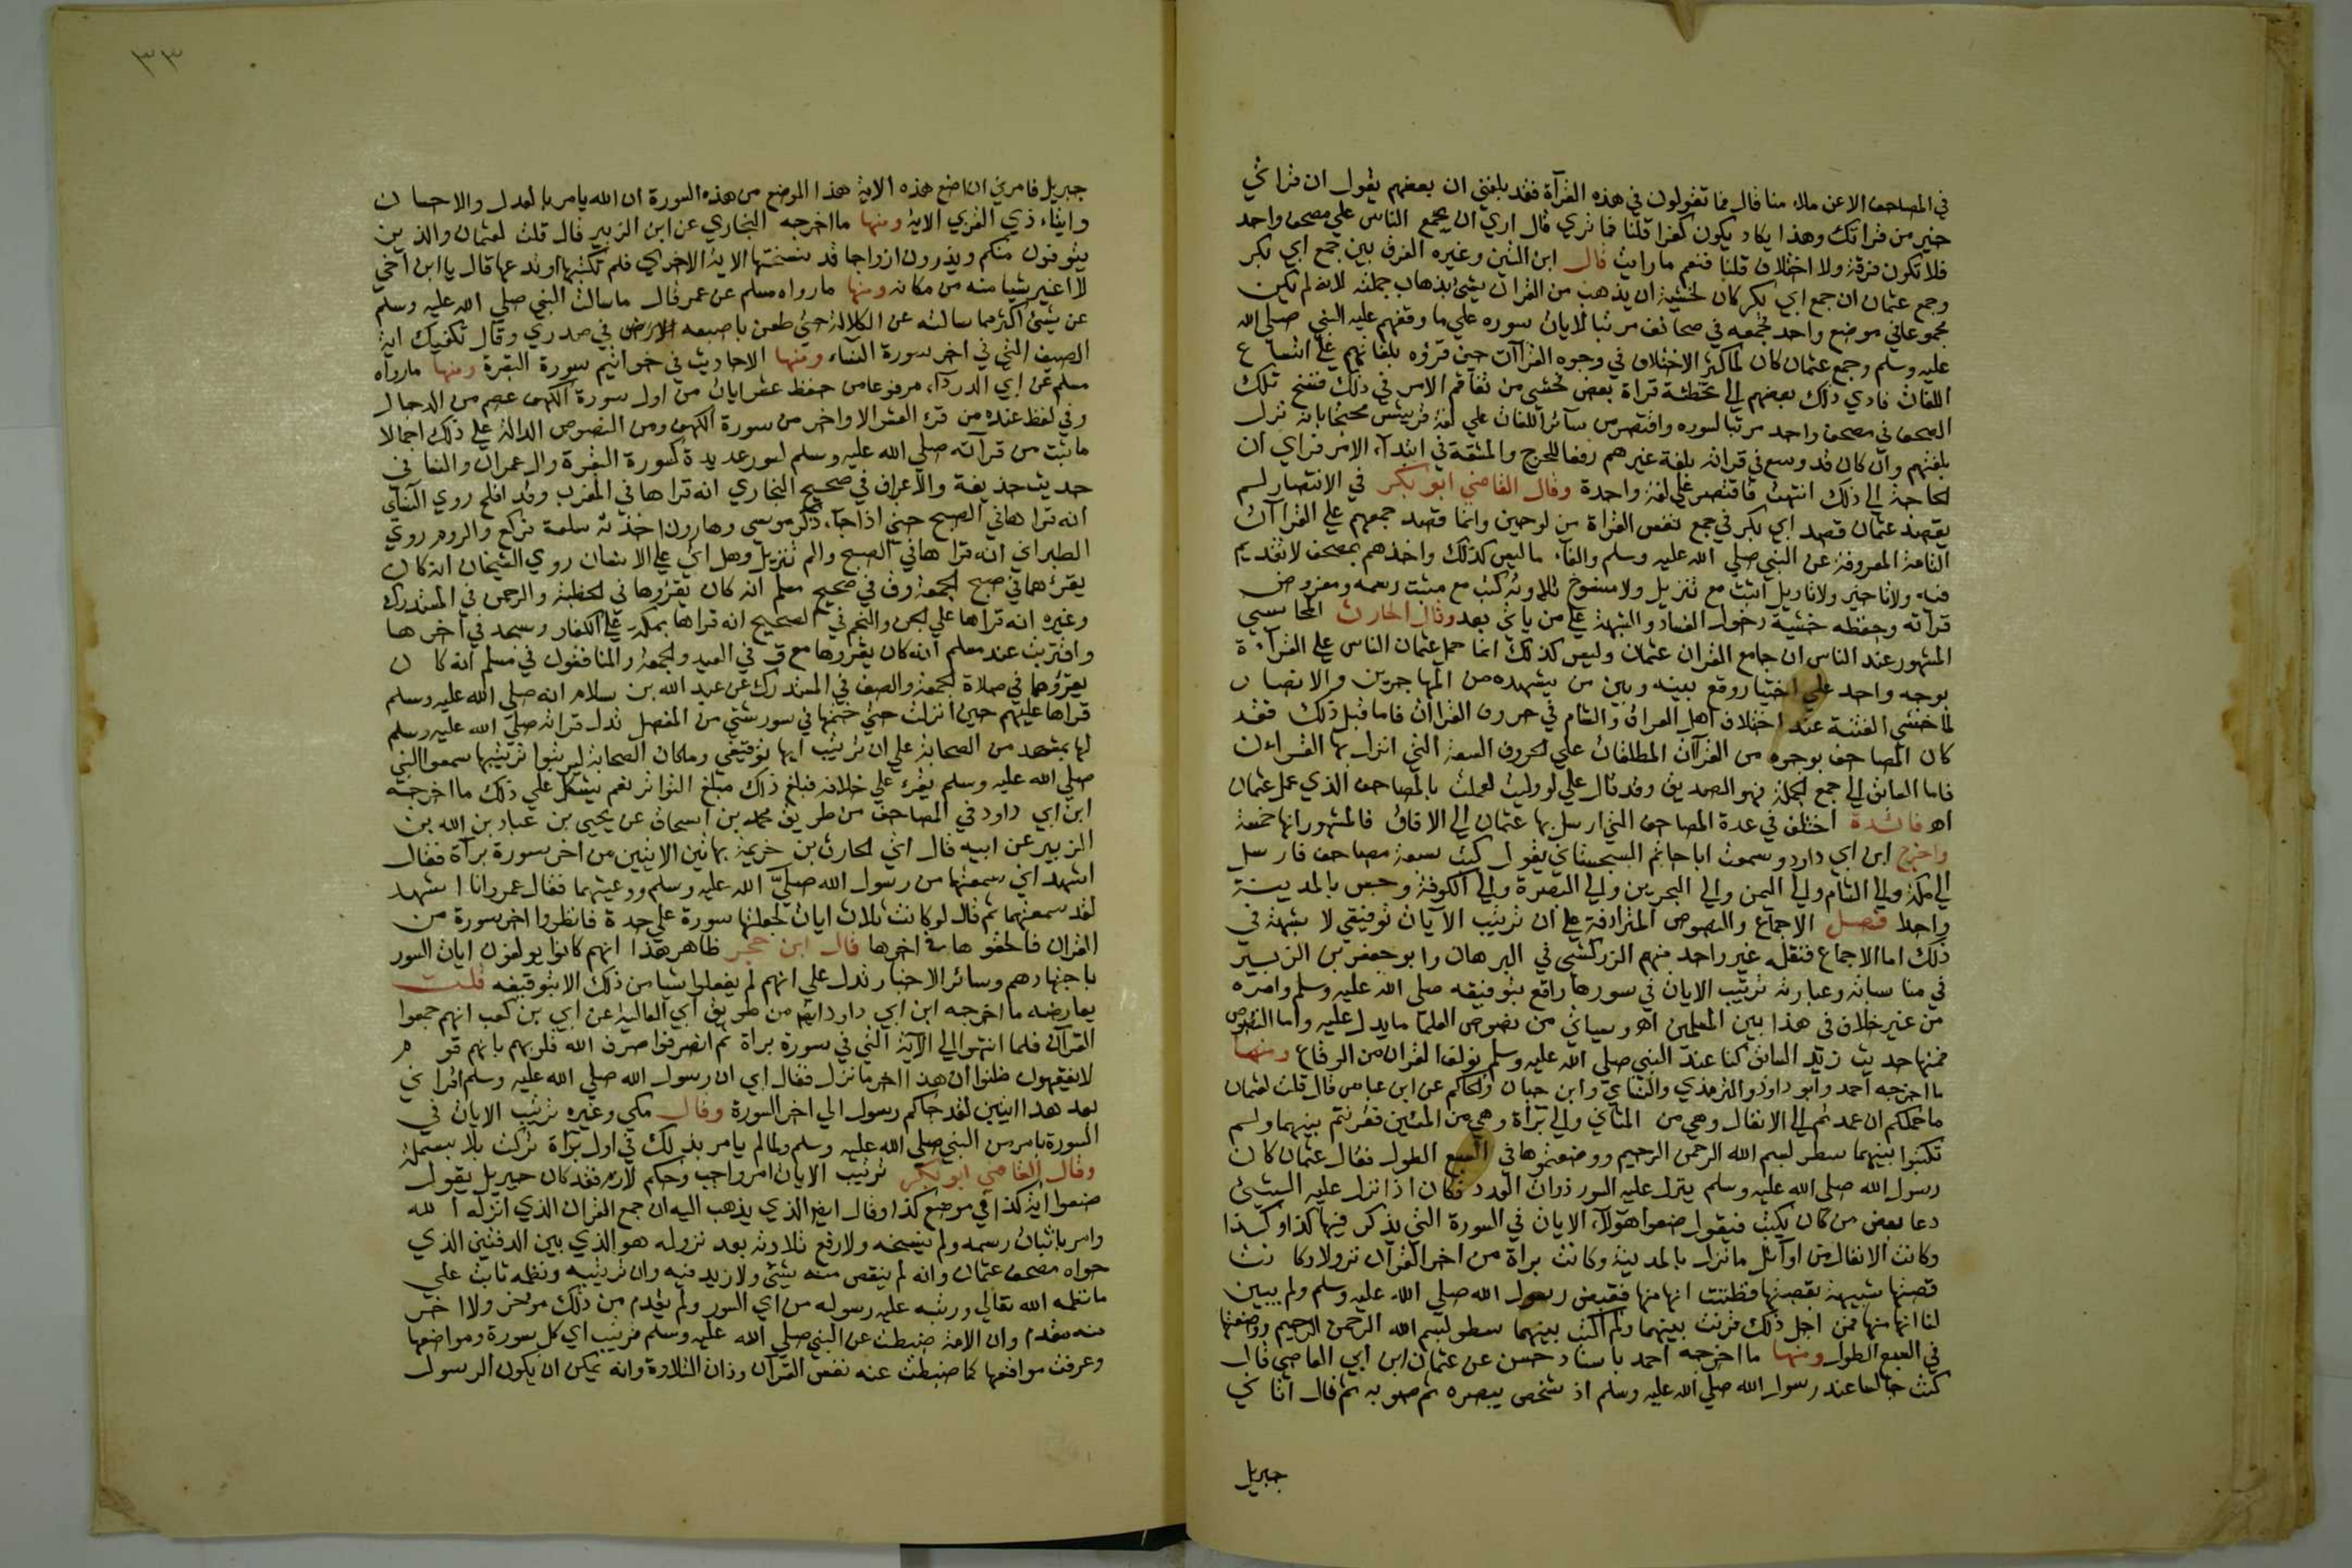 في المصاحف الا عن ملاء منا قال فما تقولون في هذه القرآة فقد بلغني ان بعضهم يقول ان قراتي
خير من قراتك وهذا يكاد يكون كفرا قلنا فما تري قال اري ان يجمع الناس علي مصحف واحد
فلا تكون فرقة ولا اختلاف قلنا فنعم ما رايت قال ابن التين وغيره الفرق بين جمع ابي بكر
وجمع عثمان ان جمع ابي بكر كان لخشية ان يذهب من القران شئ بذهاب جملته لانه لم يكن
مجموعا في موضع واحد فجمعه في صحائف مرتبا لايات سوره علي ما وقفهم عليه النبي صلي الله
عليه وسلم وجمع عثمان كان لما كثر الاختلاف في وجوه القراآت حين قرؤه بلغاتهم علي اتساع
اللغات فادي ذلك بعضهم الي تخطئة قراة بعض فخشي من تفاقم الامر في ذلك فنسخ تلك
الصحف في مصحف واحد مرتبا لسوره واقتصر من سآئر اللغات علي لغة قريش محتجا بانه نزل
بلغتهم وان كان قد وسع في قراته بلغة غيرهم رفعا للحرج والمشقة في ابتدآء الامر فراي ان
الحاجة الي ذلك انتهت فاقتصر علي لغة واحدة وقال القاضي ابو بكر في الانتصار لم
يقصد عثمان قصد ابي بكر في جمع نفس القراة بين لوحين وانما قصد جمعهم علي القراآت
الثابتة المعروفة عن النبي صلي الله عليه وسلم والغآء ما ليس كذلك واخذهم بمصحف لا تقديم
فيه ولا تاخير ولا تاويل اثبت مع تنزيل ولا منسوخ تلاوته كتب مع مثبت رسمه ومفروض
قراته وحفظه خشية دخول الفساد والشبهة علي من ياتي بعد وقال الحارث المحاسبي
المشهور عند الناس ان جامع القران عثمان وليس كذلك انما حمل عثمان الناس علي القرآءة
بوجه واحد علي اختيار وقع بينه وبين من يشهده من المهاجرين والانصار
لما خشي الفتنة عند اختلاف اهل العراق والشام في حروف القراات فاما قبل ذلك فقد
كان المصاحف بوجوه من القرآت المطلقات علي الحروف السبعة التي انزل بها القراءن
فاما السابق الي جمع الجملة فهو الصديق وقد قال علي لو وليت لعملت بالمصاحف الذي عمل عثمان
اهـ فائدة اختلف في عدة المصاحف التي ارسل بها عثمان الي الافاق فالمشهور انها خمسة
واخرج ابن ابي داود وسمعت ابا حاتم السجستاني يقول كتب سبعة مصاحف فارسل
الي مكة والي الشام والي اليمن والي البحرين والي البصرة والي الكوفة وحبس بالمدينة
واحدا فصل الاجماع والنصوص المترادفة علي ان ترتيب الآيات توقيفي لا شبهة في
ذلك اما الاجماع فنقله غير واحد منهم الزركشي في البرهان وابو جعفر بن الزبير
في مناسباته وعبارته ترتيب الايات في سورها واقع بتوقيفه صلي الله عليه وسلم وامره
من غير خلاف في هذا بين المسلمين اهـ وسياتي من نصوص العلما ما يدل عليه واما النصوص
فمنها حديث زيد السابق كنا عند النبي صلي الله عليه وسلم نولف القران من الرقاع ومنها
ما اخرجه احمد وابو داود والترمذي والنسآي وابن حبان والحاكم عن ابن عباس قال قلت لعثمان
ما حملكم ان عمدتم الي الانفال وهي من المثاني والي برآة وهي من المئين فقرنتم بينهما ولم
تكتبوا بينهما سطر بسم الله الرحمن الرحيم ووضعتموها في السبع الطول فقال عثمان كان
رسول الله صلي الله عليه وسلم ينزل عليه السور ذوات العدد فكان اذا نزل عليه الشئ
دعا بعض من كان يكتب فيقول ضعوا هولآء الايات في السورة التي يذكر فيها كذا وكذا
وكانت الانفال من اوآئل ما نزل بالمدينة وكانت براة من اخر القرآن نزولا وكانت
قصتها شبيهة بقصتها فظننت انها منها فقبض رسول الله صلي الله عليه وسلم ولم يبين
لنا انها منها فمن اجل ذلك قرنت بينهما ولم اكتب بينهما سطر بسم الله الرحمن الرحيم ووضعتها
في السبع الطول ومنها ما اخرجه احمد باسناد حسن عن عثمان ابن ابي العاصي قال
كنت جالسا عند رسول الله صلي الله عليه وسلم اذ شخص ببصره ثم صوبه ثم قال اتاني
جبريل
٣٣
جبريل فامرني ان اضع هذه الاية هذا الموضع من هذه السورة ان الله يامر بالعدل والاحسان
وايتاء ذي القربي الاية ومنها ما اخرجه البخاري عن ابن الزبير قال قلت لعثمان والذين
يتوفون منكم ويذرون ازواجا قد نسختها الاية الاخري فلم تكتبها او تدعها قال يا ابن اخي
لا اغير شيا منه من مكانه ومنها ما رواه مسلم عن عمر قال ما سالت النبي صلي الله عليه وسلم
عن شئ اكثر مما سالته عن الكلالة حتي طعن باصبعه في صدري وقال تكفيك اية
الصيف التي في اخر سورة النسآء ومنها الاحاديث في خواتيم سورة البقرة ومنها ما رواه
مسلم عن ابي الدردآء مرفوعا من حفظ عشر ايات من اول سورة الكهف عصم من الدجال
وفي لفظ عنده من قرء العشر الاواخر من سورة الكهف ومن النصوص الدالة علي ذلك اجمالا
ما ثبت من قرآته صلي الله عليه وسلم لسور عديدة كسورة البقرة وال عمران والنسا في
حديث حذيفة والاعراف في صحيح البخاري انه قراها في المغرب وقد افلح روي النسآي
انه قراها في الصبح حتي اذا جآء ذكر موسي وهارون اخذته سلعة فركع والروم روي
الطبراني انه قراها في الصبح والم تنزيل وهل اتي علي الانسان روي الشيخان انه كان
يقرءهما في صبح الجمعة وق في صحيح مسلم انه كان يقرؤها في الخطبة والرحمن في المستدرك
وغيره انه قراها علي الجن والنجم في الصحيح انه قراها بمكة علي الكفار وسجد في اخرها
واقتربت عند مسلم انه كان يقرؤها مع ق في العيد والجمعة والمنافقون في مسلم انه كان
يقرؤهما في صلاة الجمعة والصف في المستدرك عن عبد الله بن سلام انه صلي الله عليه وسلم
قراها عليهم حين انزلت حتي ختمها في سور شتي من المفصل تدل قراته صلي الله عليه وسلم
لها بمشهد من الصحابة علي ان ترتيب آيها توقيفي وما كان الصحابة ليرتبوا ترتيبا سمعوا النبي
صلي الله عليه وسلم يقرء علي خلافه فبلغ ذلك مبلغ التواتر نعم يشكل علي ذلك ما اخرجه
ابن ابي داود في المصاحف من طريق محمد بن اسحاق عن يحيي بن عباد بن الله بن
الزبير عن ابيه قال اتي الحارث بن خزيمة بهاتين الايتين من اخر سورة برآة فقال
اشهد اني سمعتها من رسول الله صلي الله عليه وسلم ووعيتهما فقال عمر وانا اشهد
لقد سمعتهما ثم قال لو كانت ثلاث ايات لجعلتها سورة علي حدة فانظروا اخر سورة من
القران فالحقوها في اخرها قال ابن حجر ظاهر هذا انهم كانوا يولفون ايات السور
باجتهادهم وسائر الاخبار تدل علي انهم لم يفعلوا شيا من ذلك الا بتوقيفه قلت
يعارضه ما اخرجه ابن ابي داود ايضا من طريق ابي العالية عن ابي بن كعب انهم جمعوا
القرآن فلما انتهوا الي الآية التي في سورة براة ثم انصرفوا صرف الله قلوبهم بانهم قوم
لا يفقهون ظنوا ان هذا اخر ما نزل فقال ابي ان رسول الله صلي الله عليه وسلم اقراني
بعد هذا ايتين لقد جاكم رسول الي اخر السورة وقال مكي وغيره ترتيب الايات في
السورة بامر من النبي صلي الله عليه وسلم ولما لم يامر بذلك في اول برآة تركت بلا بسملة
وقال القاضي ابو بكر ترتيب الايات امر واجب وحكم لازم فقد كان جبريل يقول
ضعوا اية كذا في موضع كذا وقال ايضا الذي يذهب اليه ان جمع القران الذي انزله الله
وامر باثبات رسمه ولم ينسخه ولا رفع تلاوته بعد نزوله هو الذي بين الدفتين الذي
حواه مصحف عثمان وانه لم ينقص منه شئ ولا زيد فيه وان ترتيبه ونظمه ثابت علي
ما نظمه الله تعالي ورتبه عليه رسوله من اي السور ولم يقدم من ذلك موخر ولا اخر
منه مقدم وان الامة ضبطت عن النبي صلي الله عليه وسلم ترتيب اي كل سورة ومواضعها
وعرفت مواقعها كما ضبطت عنه نفس القرآن وذات التلاوة وانه يمكن ان يكون الرسول